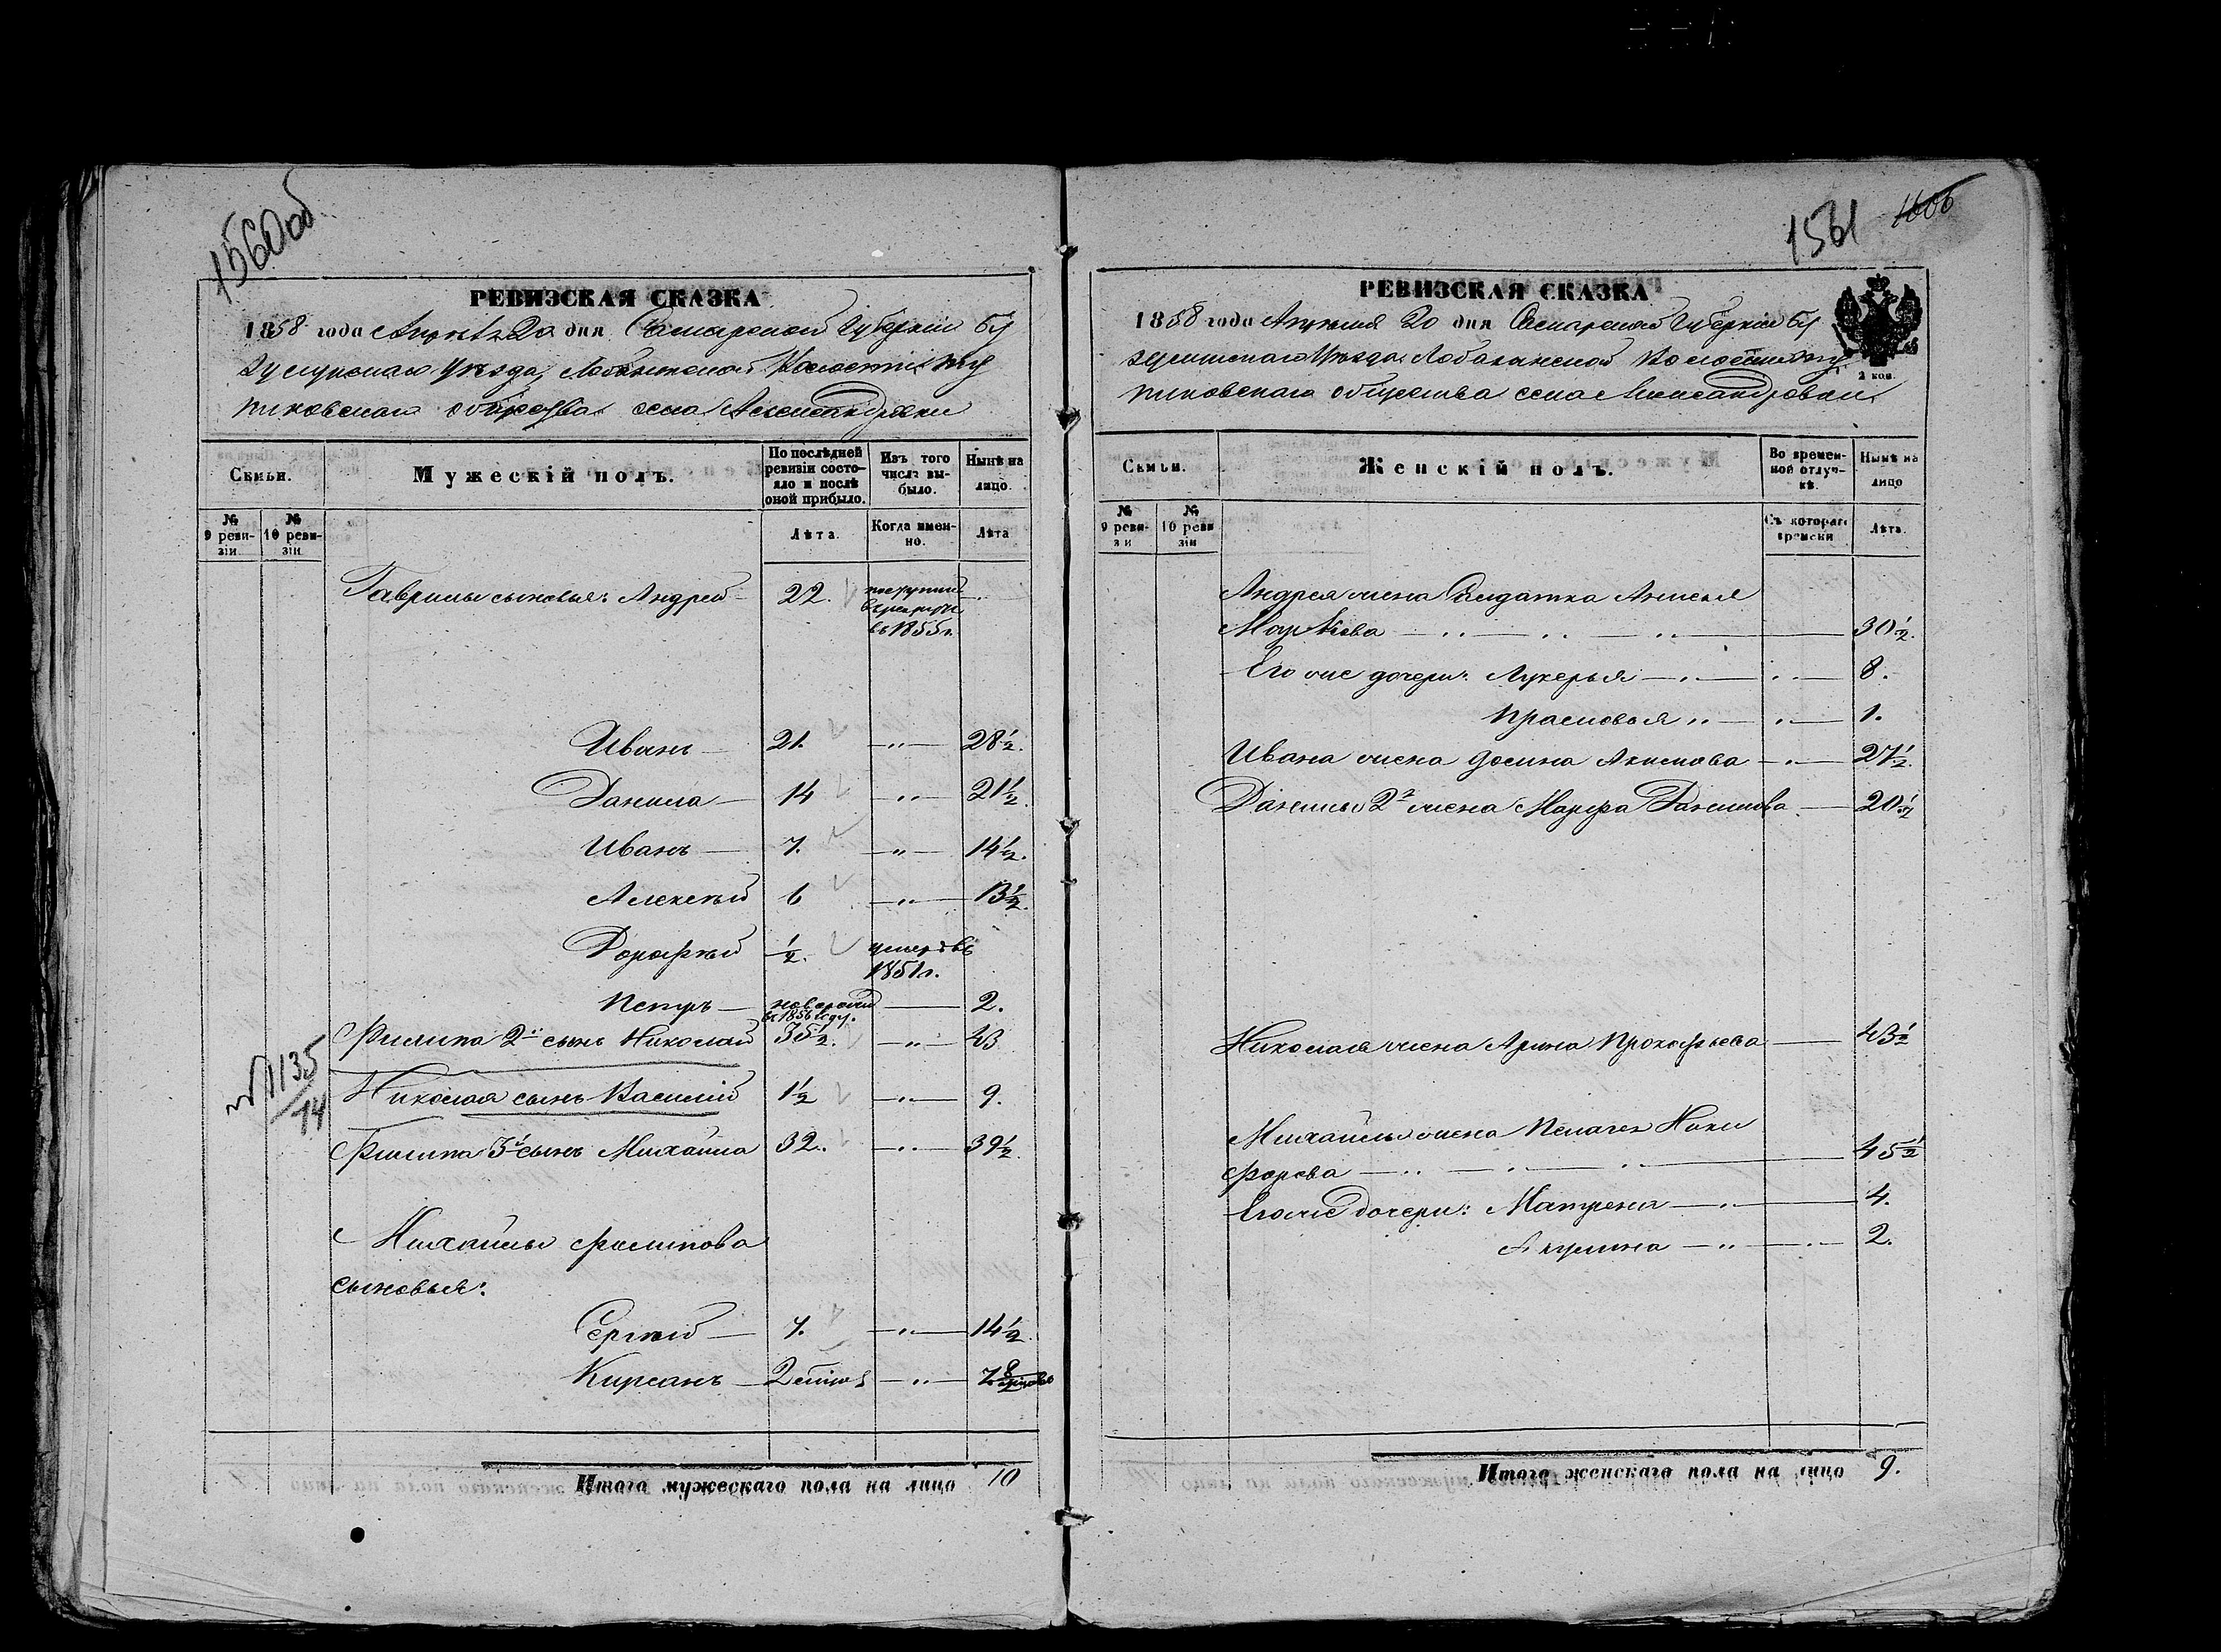 1560об
РЕВИЗСКАЯ СКАЗКА
1858 года Апреля 20 дня Самарской Губернии Бу
гульминскаго Уезда, Волости
общества села Александровки
Семьи.
Мужескій полъ.
По последней ревизіи состояло и после оной прибыло.
Изъ того числа выбыло.
Ныне на лицо.
№ 9 ревизіи
№ 10 ревизіи.
Лѣта.
Когда именно.
Лѣта
Гаврилы сыновья: Андрей 22. поступил в рекруты въ 1855 г.
Иванъ 21. —„— 28½.
Данила 14 —„— 21½.
Иванъ 7. —„— 14½.
Алексѣй 6 —„— 13½.
Дорофѣй ½. умеръ въ 1851 г.
Петръ новорожд въ 1856 году. 2.
Филипа 2й сынъ Николай 35½. —„— 43
№1135/14
Николая сынъ Василий 1½ —„— 9.
Филипа 3й сынъ Михайла 32. —„— 39½.
Михайлы Филипова
сыновья:
Сергѣй 7. —„— 14½.
Кирсанъ —„—
Итого мужескаго пола на лицо 10
1561 1606
РЕВИЗСКАЯ СКАЗКА
1858 года Апреля 20 дня Самарской Губернии Бу
Уезда, Волости
общества села Александровки
2 коп.
Семьи.
Женскій полъ.
Во временной отлучкѣ.
Нынѣ на лицо
№ 9 ревизіи
№ 10 ревизіи
Съ котораго времени
Лѣта.
Андрея жена Солдатка Анисья
30½.
Его же дочери: Лукерья 8.
Прасковья 1.
Ивана жена Акимова 27½.
Данилы 2я жена Марфа Данилова 20½
Николая жена Арина Прокофьева 43½
Михайлы жена Пелагея Ники
форова 45½
Его же дочери: Матрена 4.
Акулина 2.
Итого женскаго пола на лицо 9.